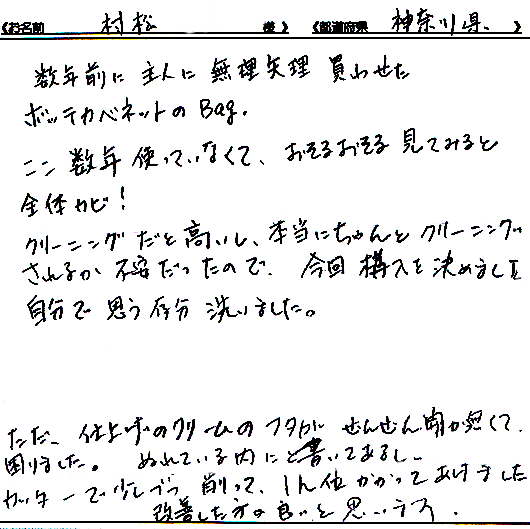 《お名前 村松 様》 《都道府県 神奈川県. 》
数年前に主人に無理矢理買わせた
ボッテカベネットのBag.
ここ数年使っていなくて、おそるおそる見てみると
全体カビ!
クリーニングだと高いし、本当にちゃんとクリーニング
されるか不安だったので、今回購入を決めました
自分で思う存分洗いました。
ただ、仕上げのクリームのフタがぜんぜん開か無くて、
困りました。ぬれている内にと書いてあるし、
カッターで少しづつ削って、1h位かかってあけました
改善した方が良いと思いです.